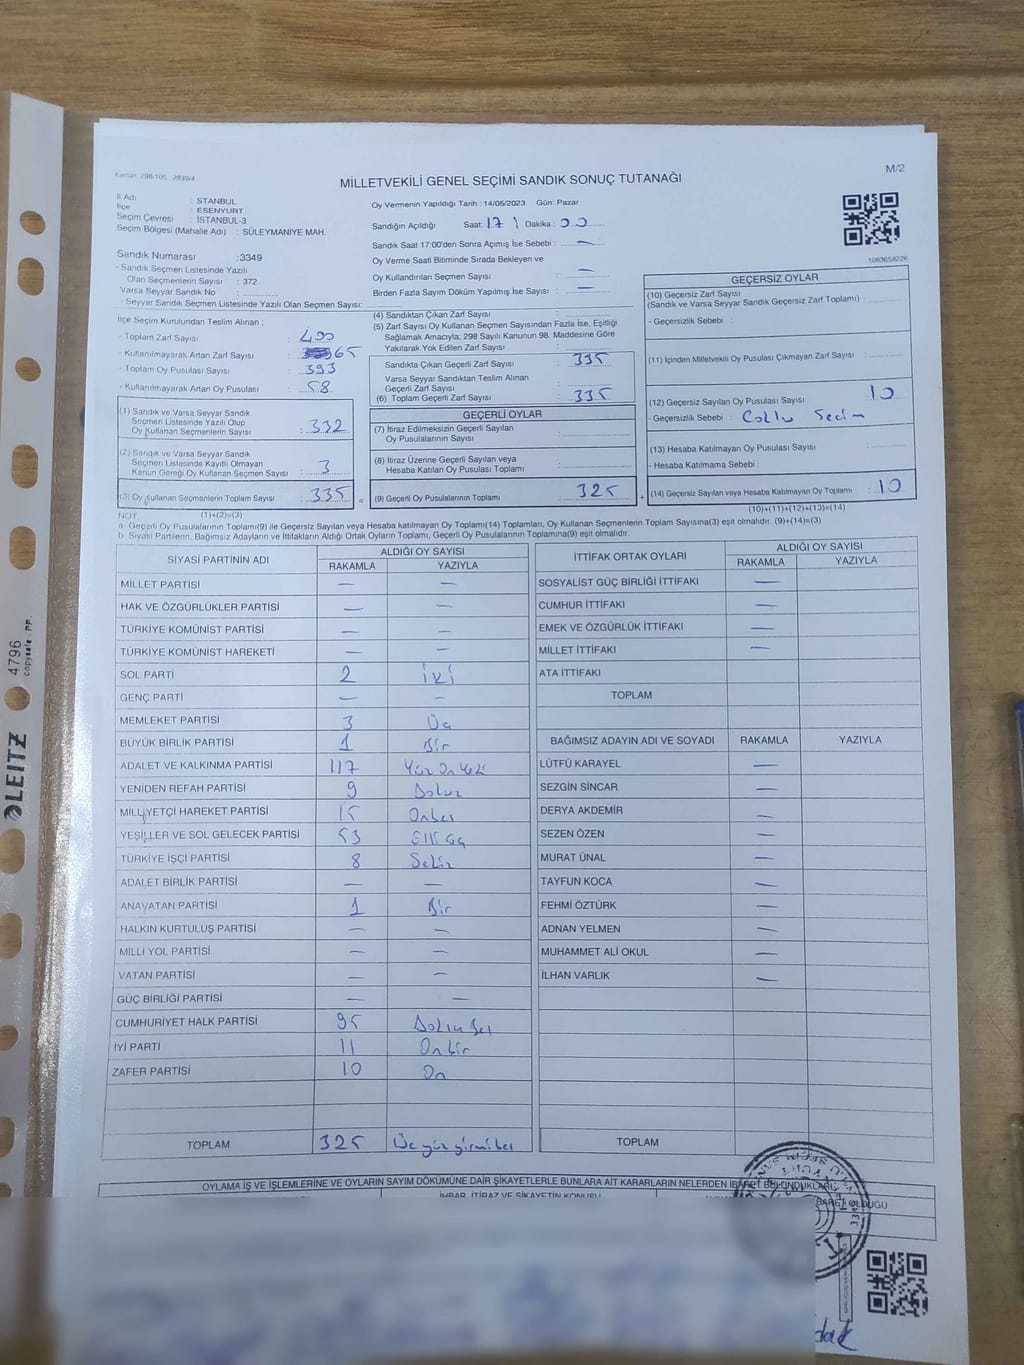 Kanun: 298/105 , 2839/4
M/2
MİLLETVEKİLİ GENEL SEÇİMİ SANDIK SONUÇ TUTANAĞI
İl Adı : STANBUL
İlçe : ESENYURT
Seçim Çevresi : İSTANBUL-3
Seçim Bölgesi (Mahalle Adı) : SÜLEYMANİYE MAH.
Sandık Numarası :3349
- Sandık Seçmen Listesinde Yazılı
Olan Seçmenlerin Sayısı : 372
Varsa Seyyar Sandık No :
- Seyyar Sandık Seçmen Listesinde Yazılı Olan Seçmen Sayısı:
Oy Vermenin Yapıldığı Tarih : 14/05/2023 Gün: Pazar
Sandığın Açıldığı Saat: 17 Dakika : 00
Sandık Saat 17:00'den Sonra Açımış İse Sebebi : —
Oy Verme Saati Bitiminde Sırada Bekleyen ve
Oy Kullandırılan Seçmen Sayısı : —
Birden Fazla Sayım Döküm Yapılmış İse Sayısı : —
1003658226
İlçe Seçim Kurulundan Teslim Alınan ;
- Toplam Zarf Sayısı : 400
- Kullanılmayarak Artan Zarf Sayısı : 65
- Toplam Oy Pusulası Sayısı : 393
- Kullanılmayarak Artan Oy Pusulası : 58
(1) Sandık ve Varsa Seyyar Sandık
Seçmen Listesinde Yazılı Olup
Oy Kullanan Seçmenlerin Sayısı : 332
(2) Sandık ve Varsa Seyyar Sandık
Seçmen Listesinde Kayıtlı Olmayan
Kanun Gereği Oy Kullanan Seçmen Sayısı : 3
(3) Oy Kullanan Seçmenlerin Toplam Sayısı : 335
(4) Sandıktan Çıkan Zarf Sayısı :
(5) Zarf Sayısı Oy Kullanan Seçmen Sayısından Fazla İse, Eşitliği
Sağlamak Amacıyla; 298 Sayılı Kanunun 98. Maddesine Göre
Yakılarak Yok Edilen Zarf Sayısı :
Sandıkta Çıkan Geçerli Zarf Sayısı : 335
Varsa Seyyar Sandıktan Teslim Alınan
Geçerli Zarf Sayısı :
(6) Toplam Geçerli Zarf Sayısı : 335
GEÇERLİ OYLAR
(7) İtiraz Edilmeksizin Geçerli Sayılan
Oy Pusulalarının Sayısı :
(8) İtiraz Üzerine Geçerli Sayılan veya
Hesaba Katılan Oy Pusulası Toplamı :
= (9) Geçerli Oy Pusulalarının Toplamı : 325
GEÇERSİZ OYLAR
(10) Geçersiz Zarf Sayısı
(Sandık ve Varsa Seyyar Sandık Geçersiz Zarf Toplamı) :
- Geçersizlik Sebebi :
(11) İçinden Milletvekili Oy Pusulası Çıkmayan Zarf Sayısı :
(12) Geçersiz Sayılan Oy Pusulası Sayısı : 10
- Geçersizlik Sebebi : Coklu Secim
(13) Hesaba Katılmayan Oy Pusulası Sayısı :
- Hesaba Katılmama Sebebi :
+ (14) Geçersiz Sayılan veya Hesaba Katılmayan Oy Toplamı : 10
NOT: (1)+(2)=(3)
(10)+(11)+(12)+(13)=(14)
a- Geçerli Oy Pusulalarının Toplamı(9) ile Geçersiz Sayılan veya Hesaba katılmayan Oy Toplamı(14) Toplamları, Oy Kullanan Seçmenlerin Toplam Sayısına(3) eşit olmalıdır. (9)+(14)=(3)
b- Siyasi Partilerin, Bağımsız Adayların ve İttifakların Aldığı Ortak Oyların Toplamı, Geçerli Oy Pusulalarının Toplamına(9) eşit olmalıdır.
SİYASİ PARTİNİN ADI ALDIĞI OY SAYISI
RAKAMLA YAZIYLA
MİLLET PARTİSİ — —
HAK VE ÖZGÜRLÜKLER PARTİSİ — —
TÜRKİYE KOMÜNİST PARTİSİ — —
TÜRKİYE KOMÜNİST HAREKETİ — —
SOL PARTİ 2 iki
GENÇ PARTİ — —
MEMLEKET PARTİSİ 3 Üç
BÜYÜK BİRLİK PARTİSİ 1 Bir
ADALET VE KALKINMA PARTİSİ 117 Yüz On Yedi
YENİDEN REFAH PARTİSİ 9 Dokuz
MİLLİYETÇİ HAREKET PARTİSİ 15 Onbes
YEŞİLLER VE SOL GELECEK PARTİSİ 53 Elli üç
TÜRKİYE İŞÇİ PARTİSİ 8 Sekiz
ADALET BİRLİK PARTİSİ — —
ANAVATAN PARTİSİ 1 Bir
HALKIN KURTULUŞ PARTİSİ — —
MİLLİ YOL PARTİSİ — —
VATAN PARTİSİ — —
GÜÇ BİRLİĞİ PARTİSİ — —
CUMHURİYET HALK PARTİSİ 95 Doksan Beş
İYİ PARTİ 11 Onbir
ZAFER PARTİSİ 10 On
TOPLAM 325 Üç yüz yirmi bes
İTTİFAK ORTAK OYLARI ALDIĞI OY SAYISI
RAKAMLA YAZIYLA
SOSYALİST GÜÇ BİRLİĞİ İTTİFAKI —
CUMHUR İTTİFAKI —
EMEK VE ÖZGÜRLÜK İTTİFAKI —
MİLLET İTTİFAKI —
ATA İTTİFAKI
TOPLAM
BAĞIMSIZ ADAYIN ADI VE SOYADI RAKAMLA YAZIYLA
LÜTFÜ KARAYEL —
SEZGİN SİNCAR —
DERYA AKDEMİR —
SEZEN ÖZEN —
MURAT ÜNAL —
TAYFUN KOCA —
FEHMİ ÖZTÜRK —
ADNAN YELMEN —
MUHAMMET ALİ OKUL —
İLHAN VARLIK —
TOPLAM
OYLAMA İŞ VE İŞLEMLERİNE VE OYLARIN SAYIM DÖKÜMÜNE DAİR ŞİKAYETLERLE BUNLARA AİT KARARLARIN NELERDEN İBARET BULUNDUKLARI
İHBAR, İTİRAZ VE ŞİKAYETİN KONUSU
OLDUĞU
LEITZ
4796
copysafe